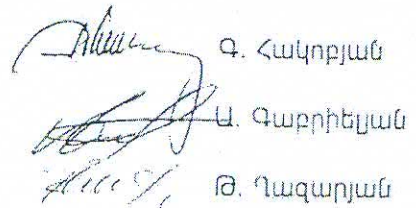 Գ. Հակոբյան
Ա. Գաբրիելյան
Թ. Ղազարյան